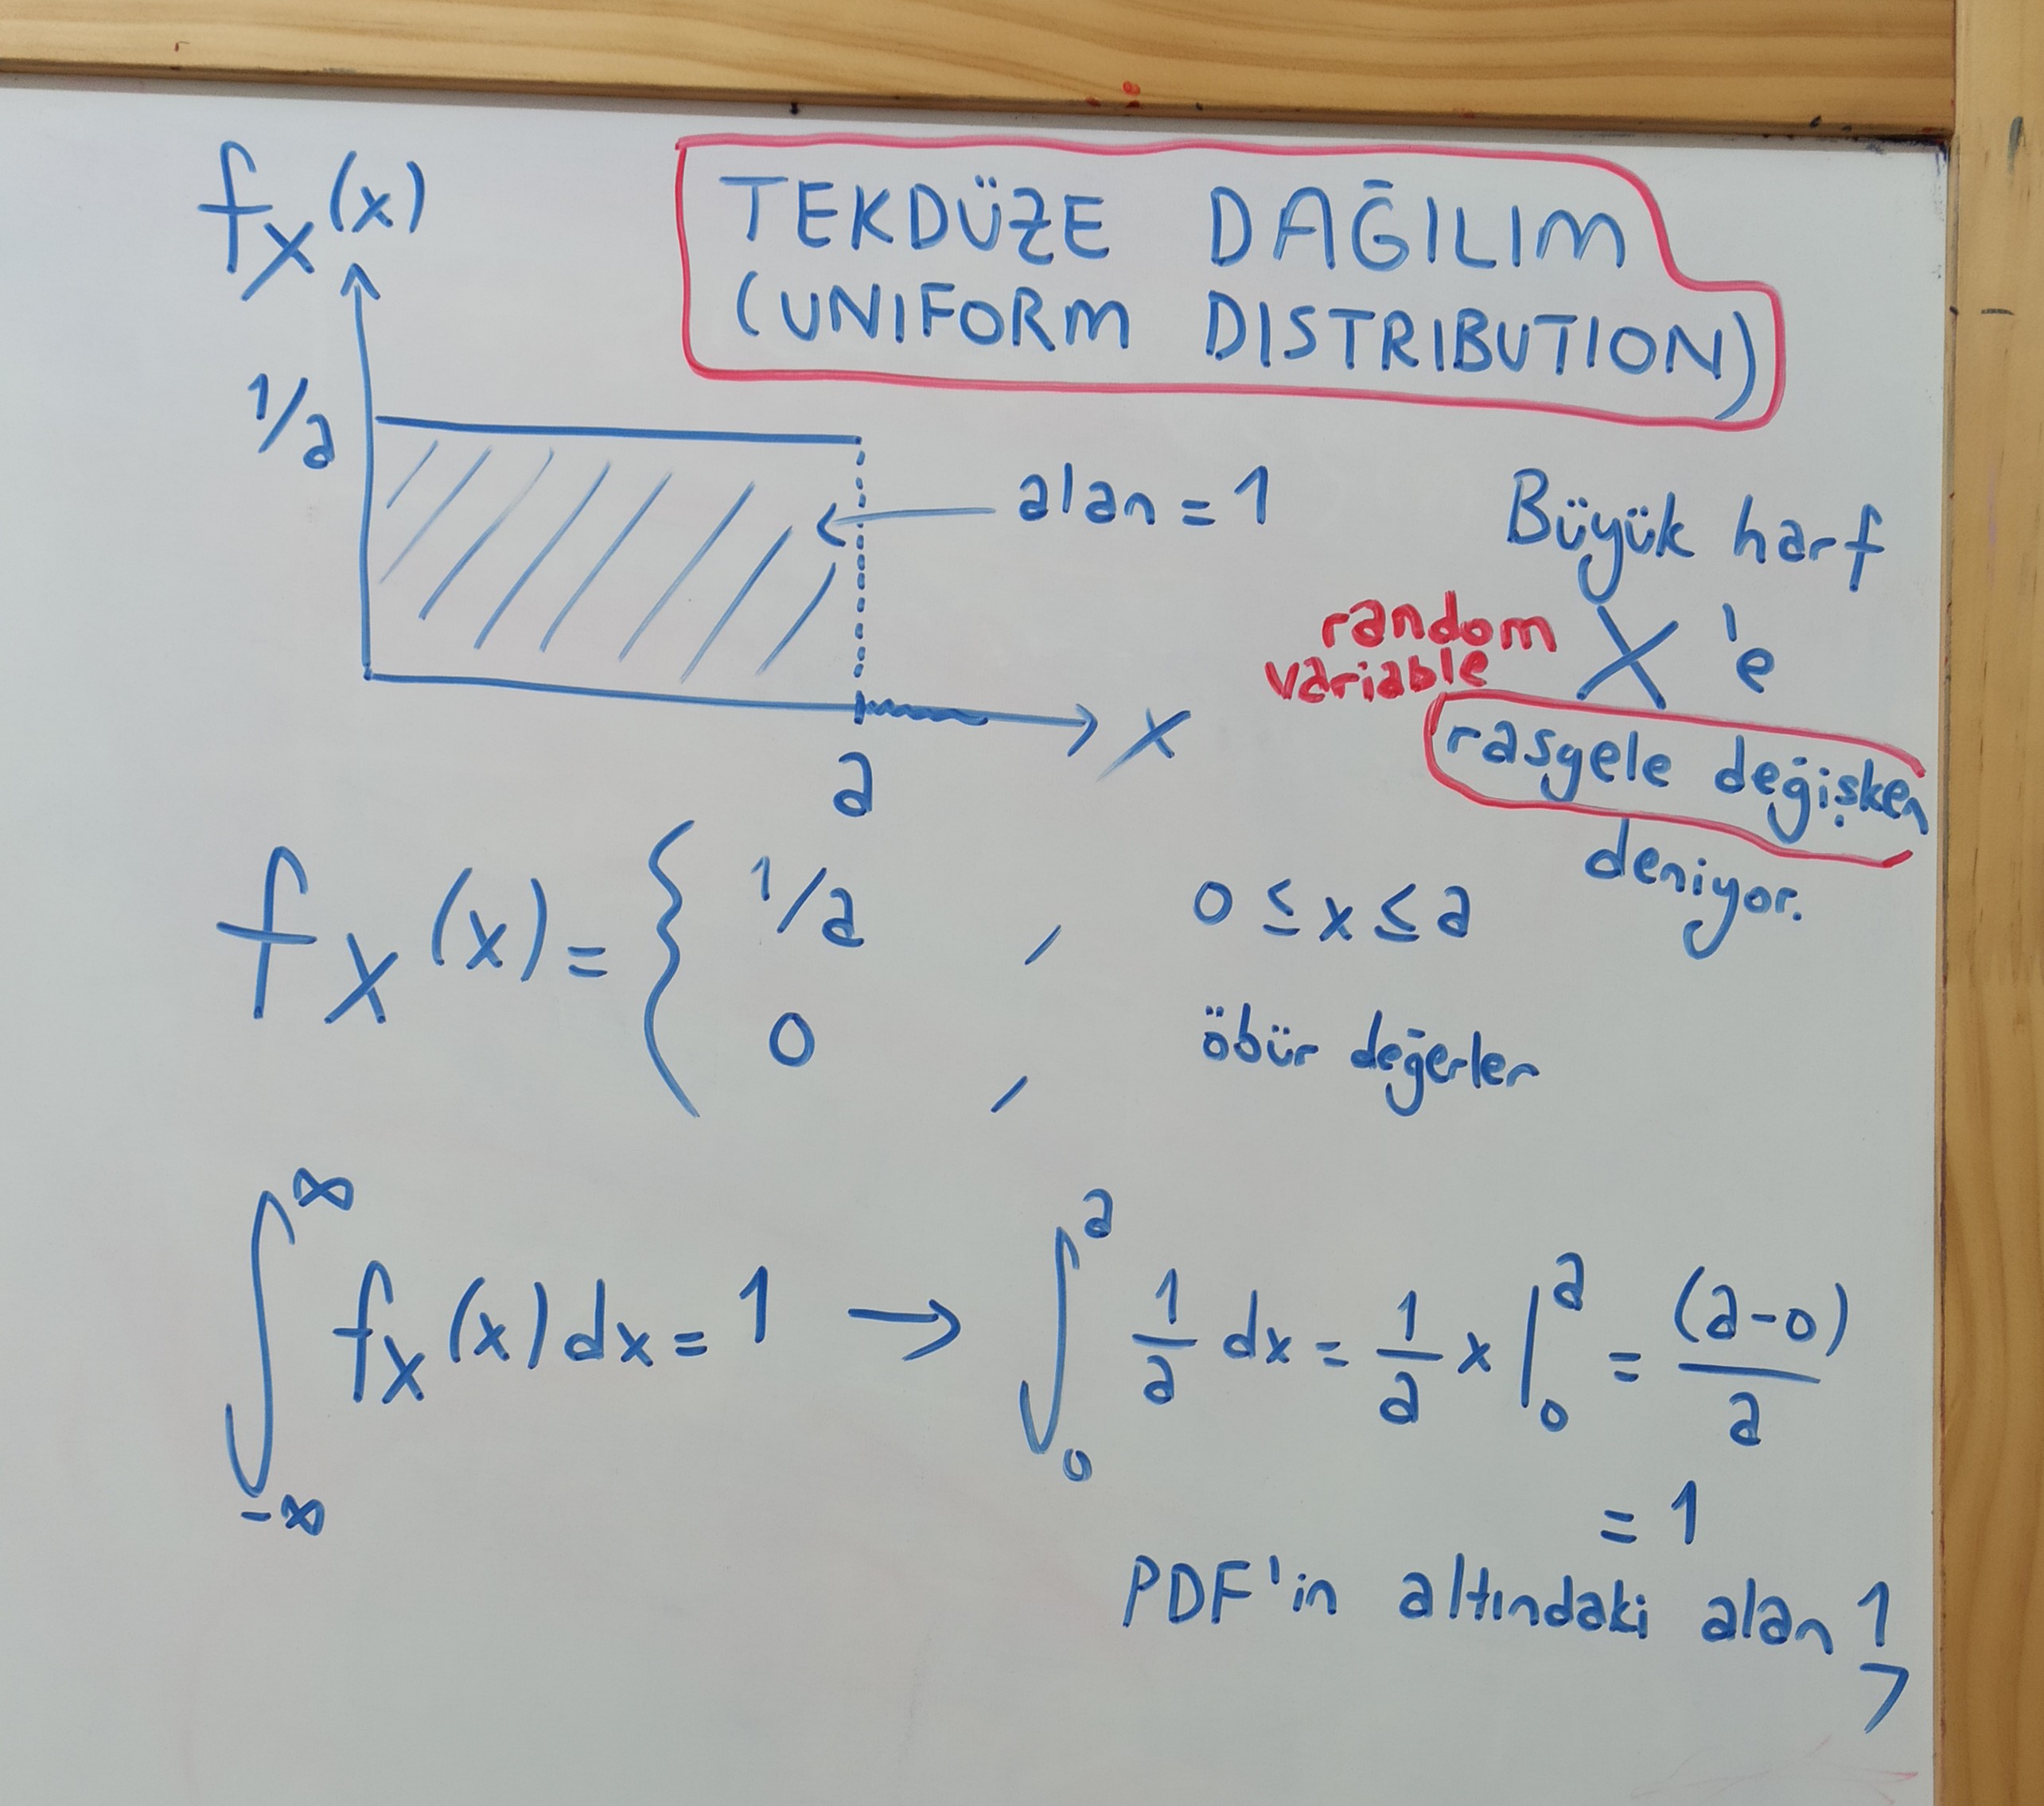 fX(x)
TEKDÜZE DAĞILIM
(UNIFORM DISTRIBUTION)
1/a
alan = 1
x
a
Büyük harf
X'e
random
variable
rasgele değişken
deniyor.
fX(x) = { 1/a , 0 ≤ x ≤ a
0 , öbür değerler
∫_{-∞}^{∞} fX(x) dx = 1 → ∫_0^a 1/a dx = 1/a x |_0^a = (a-0)/a
= 1
PDF'in altındaki alan 1